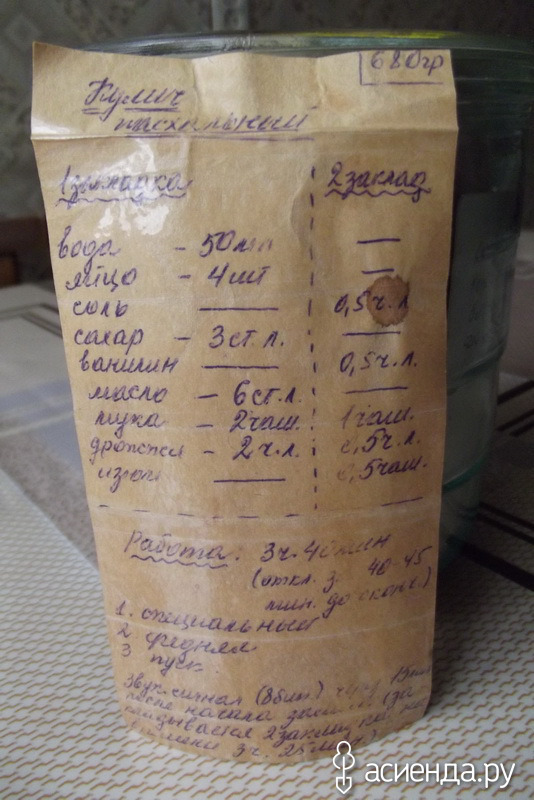 680гр
Кулич
пасхальный
1 закладка 2 заклад
вода - 50мл —
яйцо - 4 шт —
соль — 0,5 ч.л
сахар - 3 ст.л. —
ванилин — 0,5 ч.л.
масло - 6 ст.л. —
мука - 2 чаш. 1 чаш.
дрожжи - 2 ч.л. 0,5 ч.л.
изюм — 0,5 чаш.
Работа: 3ч. 40 мин
(откл. з 40-45
мин. до оконч.)
1. специальный
2 средняя
3 пуск.
Звук. сигнал (8бип) 15
после начала
2 заклад
3 ч. 25 мин.)
асиенда.ру